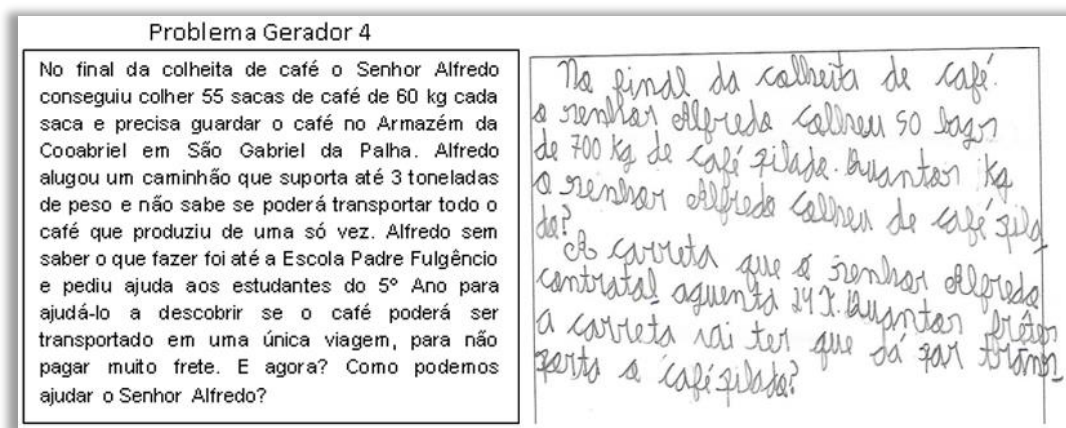 Problema Gerador 4
No final da colheita de café o Senhor Alfredo
conseguiu colher 55 sacas de café de 60 kg cada
saca e precisa guardar o café no Armazém da
Cooabriel em São Gabriel da Palha. Alfredo
alugou um caminhão que suporta até 3 toneladas
de peso e não sabe se poderá transportar todo o
café que produziu de uma só vez. Alfredo sem
saber o que fazer foi até a Escola Padre Fulgêncio
e pediu ajuda aos estudantes do 5º Ano para
ajudá-lo a descobrir se o café poderá ser
transportado em uma única viagem, para não
pagar muito frete. E agora? Como podemos
ajudar o Senhor Alfredo?
No final da colheita de café.
o senhor Alfredo colheu 50 bags
de 700 Kg de café pilado. Quantos Kg
o senhor Alfredo colheu de café pila
do?
A carreta que o senhor Alfredo
aguenta 24 T. Quantos frêtes
a carreta vai ter que dá par trans-
porta o café pilado?